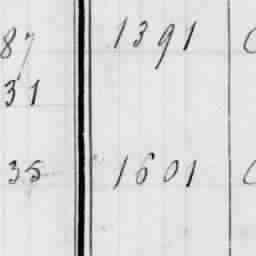 87 1391 C
31
35 1601 C